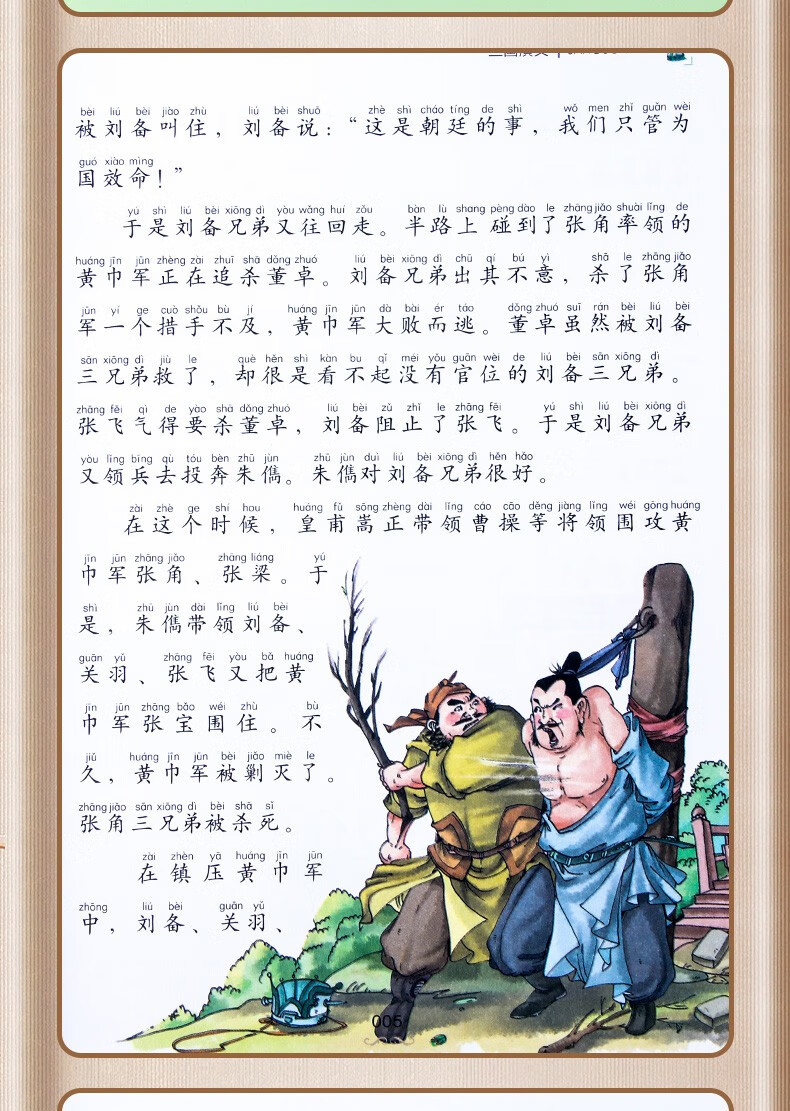 bèi liú bèi jiào zhù liú bèi shuō zhè shì cháo tíng de shì wǒ men zhǐ guǎn wèi
被刘备叫住，刘备说：“这是朝廷的事，我们只管为
guó xiào mìng
国效命！”
yú shì liú bèi xiōng dì yòu wǎng huí zǒu bàn lù shang pèng dào le zhāng jiǎo shuài lǐng de
于是刘备兄弟又往回走。半路上碰到了张角率领的
huáng jīn jūn zhèng zài zhuī shā dǒng zhuó liú bèi xiōng dì chū qí bú yì shā le zhāng jiǎo
黄巾军正在追杀董卓。刘备兄弟出其不意，杀了张角
jūn yí ge cuò shǒu bù jí huáng jīn jūn dà bài ér táo dǒng zhuó suī rán bèi liú bèi
军一个措手不及，黄巾军大败而逃。董卓虽然被刘备
sān xiōng dì jiù le què hěn shì kàn bu qǐ méi yǒu guān wèi de liú bèi sān xiōng dì
三兄弟救了，却很是看不起没有官位的刘备三兄弟。
zhāng fēi qì de yào shā dǒng zhuó liú bèi zǔ zhǐ le zhāng fēi yú shì liú bèi xiōng dì
张飞气得要杀董卓，刘备阻止了张飞。于是刘备兄弟
yòu lǐng bīng qù tóu bèn zhū jùn zhū jùn duì liú bèi xiōng dì hěn hǎo
又领兵去投奔朱儁。朱儁对刘备兄弟很好。
zài zhè ge shí hou huáng fǔ sōng zhèng dài lǐng cáo cāo děng jiàng lǐng wéi gōng huáng
在这个时候，皇甫嵩正带领曹操等将领围攻黄
jīn jūn zhāng jiǎo zhāng liáng yú
巾军张角、张梁。于
shì zhū jùn dài lǐng liú bèi
是，朱儁带领刘备、
guān yǔ zhāng fēi yòu bǎ huáng
关羽、张飞又把黄
jīn jūn zhāng bǎo wéi zhù bù
巾军张宝围住。不
jiǔ huáng jīn jūn bèi jiǎo miè le
久，黄巾军被剿灭了。
zhāng jiǎo sān xiōng dì bèi shā sǐ
张角三兄弟被杀死。
zài zhèn yā huáng jīn jūn
在镇压黄巾军
zhōng liú bèi guān yǔ
中，刘备、关羽、
005